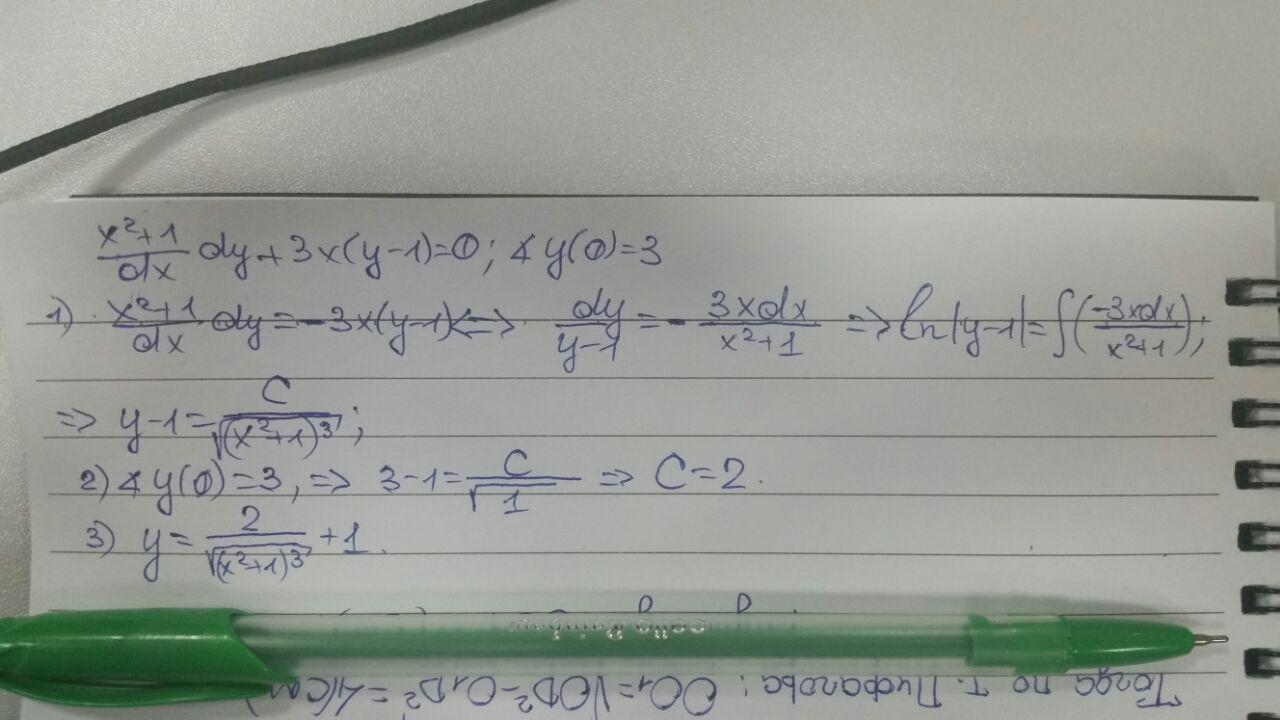 (x²+1)/dx dy + 3x(y-1)=0; ∡ y(0)=3
1) (x²+1)/dx dy = -3x(y-1) <=> dy/(y-1) = - 3xdx/(x²+1) => ln|y-1| = ∫(-3xdx/(x²+1));
=> y-1 = C/√((x²+1)³);
2) ∡ y(0)=3, => 3-1 = C/√1 => C=2.
3) y = 2/√((x²+1)³) + 1.
Тогда по т. Пифагора: OO₁=√OD²-O₁D²